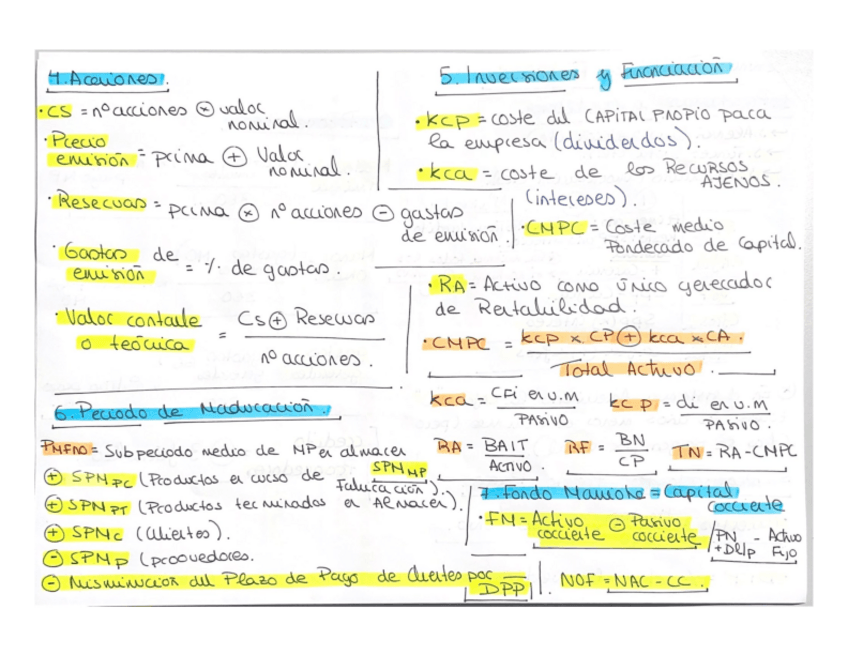 4. Acciones.
· CS = nº acciones ⊗ valor
nominal.
· Precio
emisión = prima ⊕ Valor
nominal.
· Reservas = prima ⊗ nº acciones ⊖ gastos
de emisión.
· Gastos de
emisión = % de gastos.
· Valor contable
o teórica = Cs ⊕ Reservas
nº acciones.
5. Inversiones y Financiación
· kcp = coste del CAPITAL PROPIO para
la empresa (dividendos).
· kca = coste de los RECURSOS
AJENOS.
(intereses).
· CMPC = Coste medio
Ponderado de Capital.
· RA = Activo como único generador
de Rentabilidad.
· CMPC = kcp x CP ⊕ kca x CA.
Total Activo.
kca = CPi en u.m
PASIVO
kcp = di en u.m
PASIVO.
RA = BAIT
ACTIVO.
RF = BN
CP
TN = RA - CMPC
6. Periodo de Maduración.
PMFNO = Subperiodo medio de MP en almacen
SPM MP
⊕ SPM PC (Productos en curso de
Fabricación).
⊕ SPM PT (Productos terminados en Almacen).
⊕ SPM C (Clientes).
⊖ SPM P (proovedores.
⊖ Disminucion del Plazo de Pago de Clientes por
DPP
7. Fondo Maniobra = Capital
corriente
· FM = Activo
corriente ⊖ Pasivo
corriente / PN
+ Dl/p - Activo
Fijo
NOF = NAC - CC.